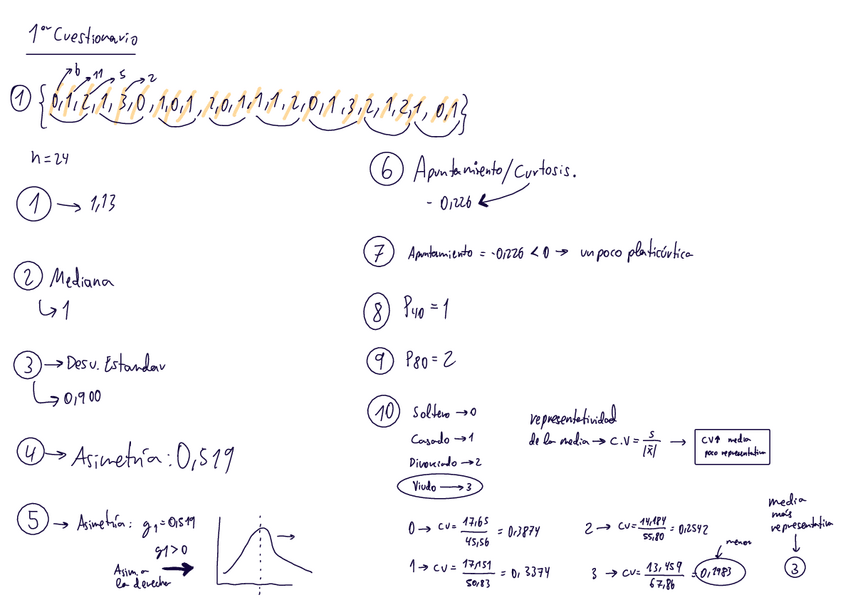 1er Cuestionario
6 11 5 2
① {0,1,2,1,3,0,1,0,1,2,0,1,1,1,2,0,1,3,2,1,2,1,0,1}
n=24
① → 1,13
② Mediana
↳ 1
③ → Desv. Estandar
↳ 0,900
④ → Asimetría: 0,519
⑤ → Asimetría: g₁=0,519
g1>0
Asim. a
la derecha
⑥ Apuntamiento/Curtosis.
-0,226
⑦ Apuntamiento = -0,226 < 0 → un poco platicúrtica
⑧ P40 = 1
⑨ P80 = 2
⑩ Soltero → 0
Casado → 1
Divorciado → 2
Viudo → 3
representatividad
de la media → C.V = s/|x̄| → CV↑ media
poco representativa
0 → CV = 17,65/45,56 = 0,3874
1 → CV = 17,151/50,83 = 0,3374
2 → CV = 14,184/55,80 = 0,2542
3 → CV = 13,459/67,86 = 0,1983
menos
media
más
representativa
③